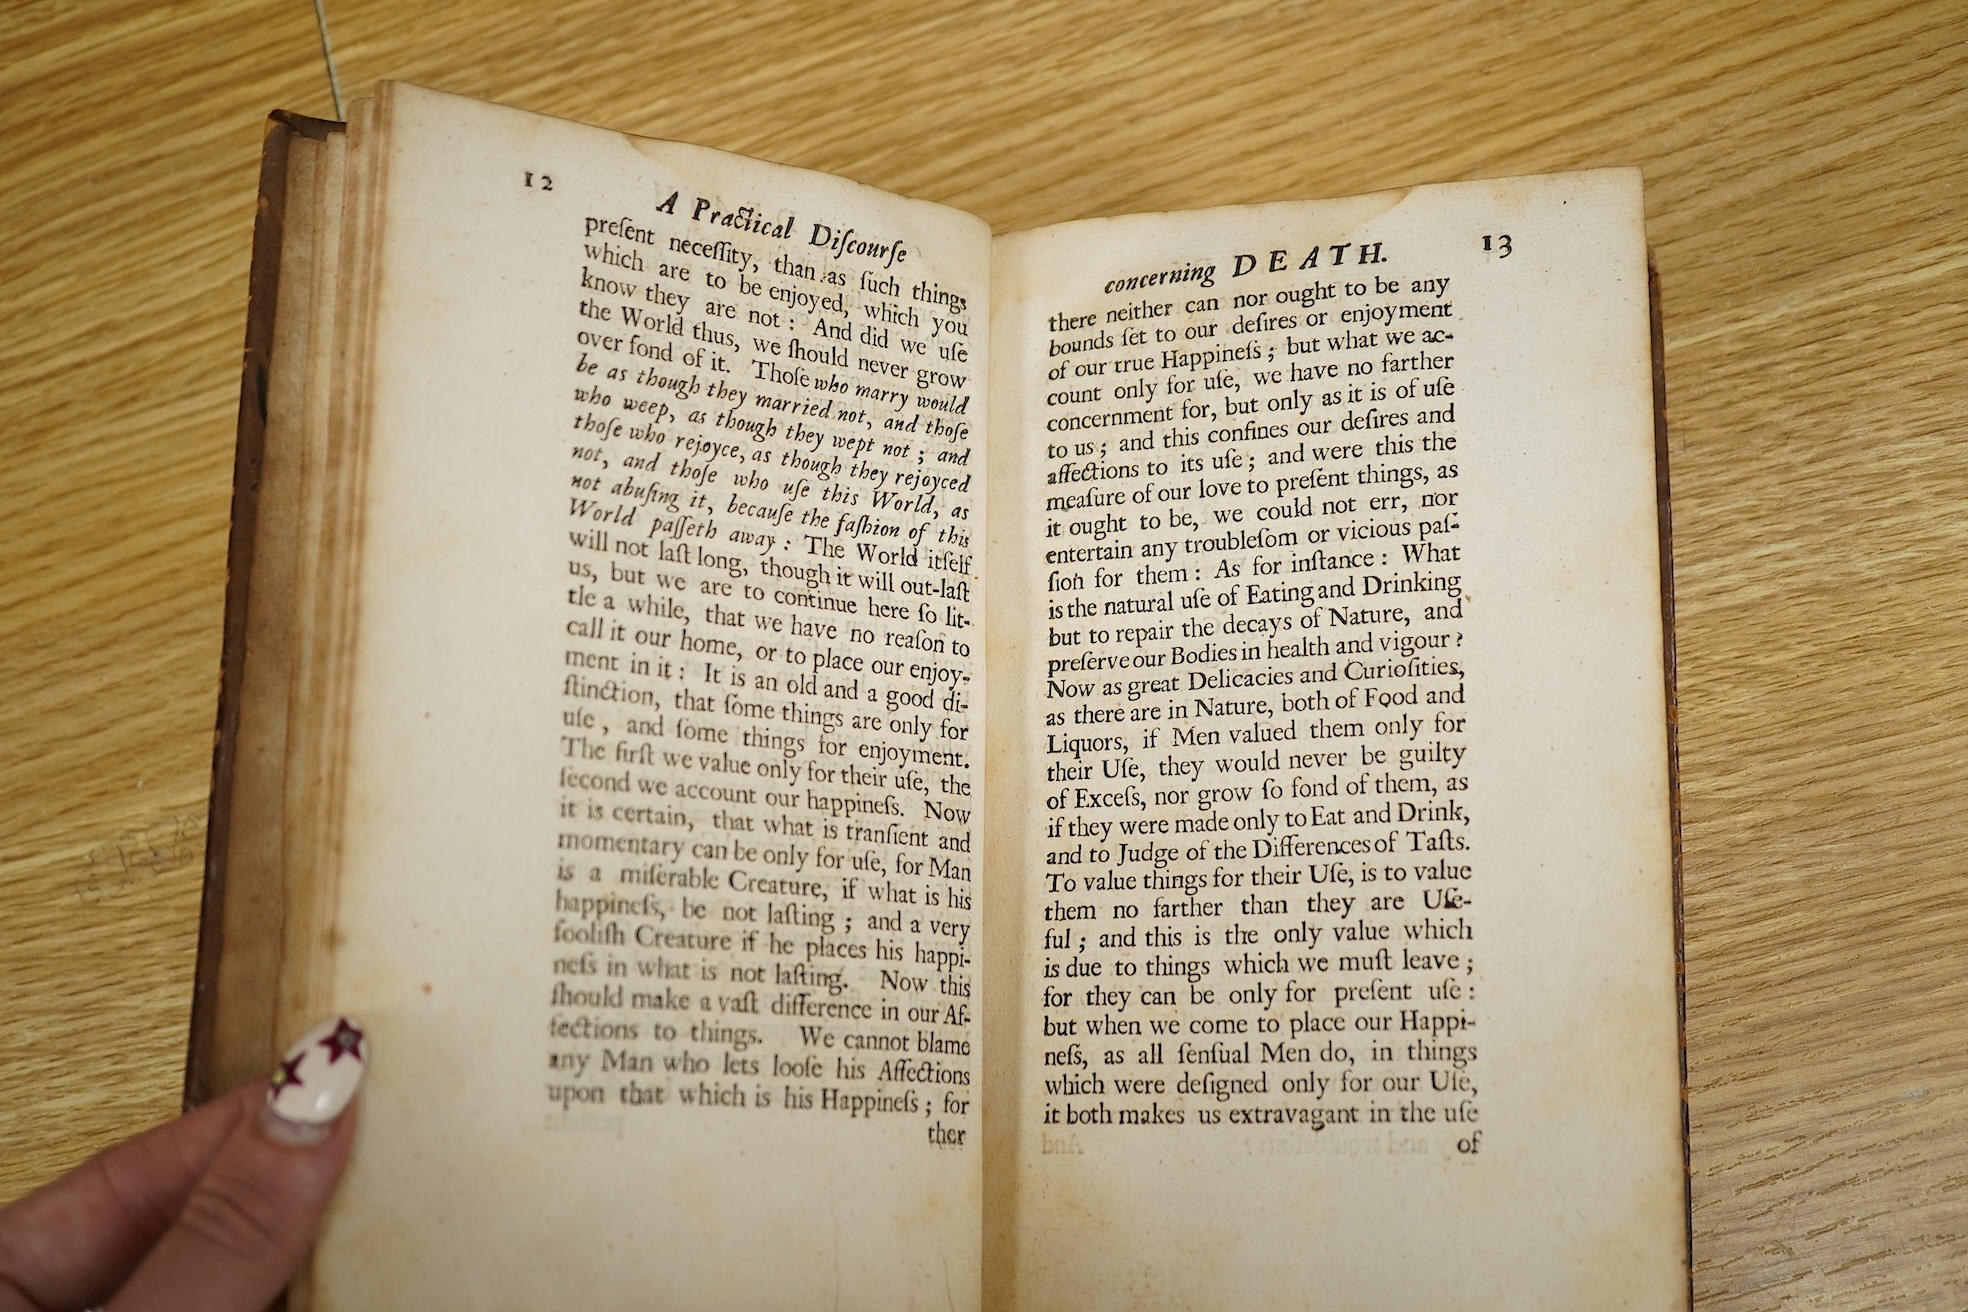 12
A Practical Diſcourſe
preſent neceſſity, than as ſuch things
which are to be enjoyed, which you
know they are not: And did we uſe
the World thus, we ſhould never grow
over fond of it. Thoſe who marry would
be as though they married not, and thoſe
who weep, as though they wept not; and
thoſe who rejoyce, as though they rejoyced
not, and thoſe who uſe this World, as
not abuſing it, becauſe the faſhion of this
World paſſeth away: The World itſelf
will not laſt long, though it will out-laſt
us, but we are to continue here ſo lit-
tle a while, that we have no reaſon to
call it our home, or to place our enjoy-
ment in it: It is an old and a good di-
ſtinction, that ſome things are only for
uſe, and ſome things for enjoyment.
The firſt we value only for their uſe, the
ſecond we account our happineſs. Now
it is certain, that what is tranſient and
momentary can be only for uſe, for Man
is a miſerable Creature, if what is his
happineſs, be not laſting; and a very
fooliſh Creature if he places his happi-
neſs in what is not laſting. Now this
ſhould make a vaſt difference in our Af-
fections to things. We cannot blame
any Man who lets looſe his Affections
upon that which is his Happineſs; for
ther
concerning DEATH. 13
there neither can nor ought to be any
bounds ſet to our deſires or enjoyment
of our true Happineſs; but what we ac-
count only for uſe, we have no farther
concernment for, but only as it is of uſe
to us; and this confines our deſires and
affections to its uſe; and were this the
meaſure of our love to preſent things, as
it ought to be, we could not err, nor
entertain any troubleſom or vicious paſ-
ſion for them: As for inſtance: What
is the natural uſe of Eating and Drinking
but to repair the decays of Nature, and
preſerve our Bodies in health and vigour?
Now as great Delicacies and Curioſities,
as there are in Nature, both of Food and
Liquors, if Men valued them only for
their Uſe, they would never be guilty
of Exceſs, nor grow ſo fond of them, as
if they were made only to Eat and Drink,
and to Judge of the Differences of Taſts.
To value things for their Uſe, is to value
them no farther than they are Uſe-
ful; and this is the only value which
is due to things which we muſt leave;
for they can be only for preſent uſe:
but when we come to place our Happi-
neſs, as all ſenſual Men do, in things
which were deſigned only for our Uſe,
it both makes us extravagant in the uſe
of